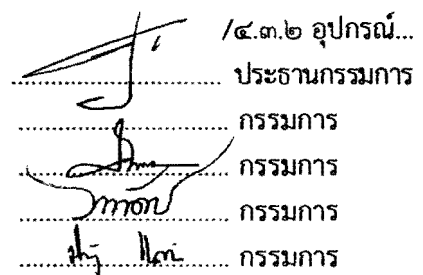 /๔.๓.๒ อุปกรณ์...
........................ ประธานกรรมการ
........................ กรรมการ
........................ กรรมการ
........................ กรรมการ
........................ กรรมการ